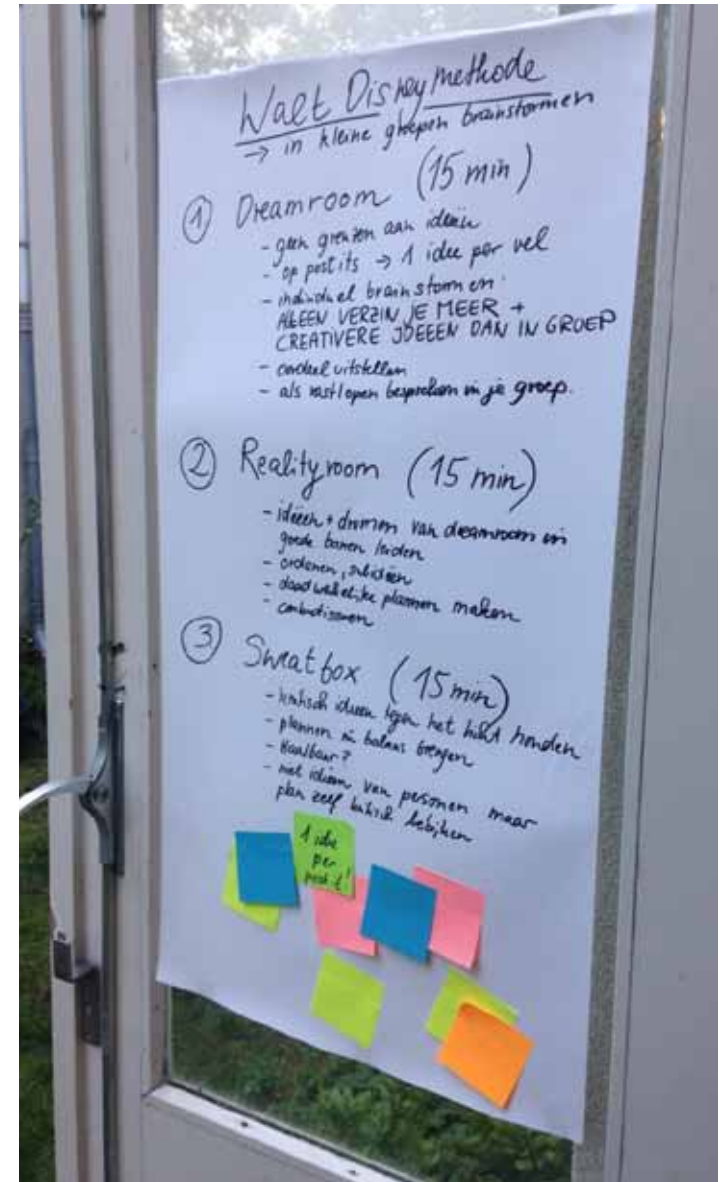 Walt Disney methode
→ in kleine groepen brainstormen
① Dreamroom (15 min)
- geen grenzen aan ideeën
- op post its → 1 idee per vel
- individueel brainstormen:
ALLEEN VERZIN JE MEER +
CREATIVERE IDEEEN DAN IN GROEP
- oordeel uitstellen
- als vastlopen bespreken in je groep.
② Realityroom (15 min)
- ideeën + dromen van dreamroom in
goede banen leiden
- ordenen, subideeën
- daadwerkelijke plannen maken
- combineren
③ Sweatbox (15 min)
- kritisch ideeen tegen het licht houden
- plannen in balans brengen
- Haalbaar?
- niet ideeen van personen maar
plan zelf kritisch bekijken
1 idee
per
post-it!